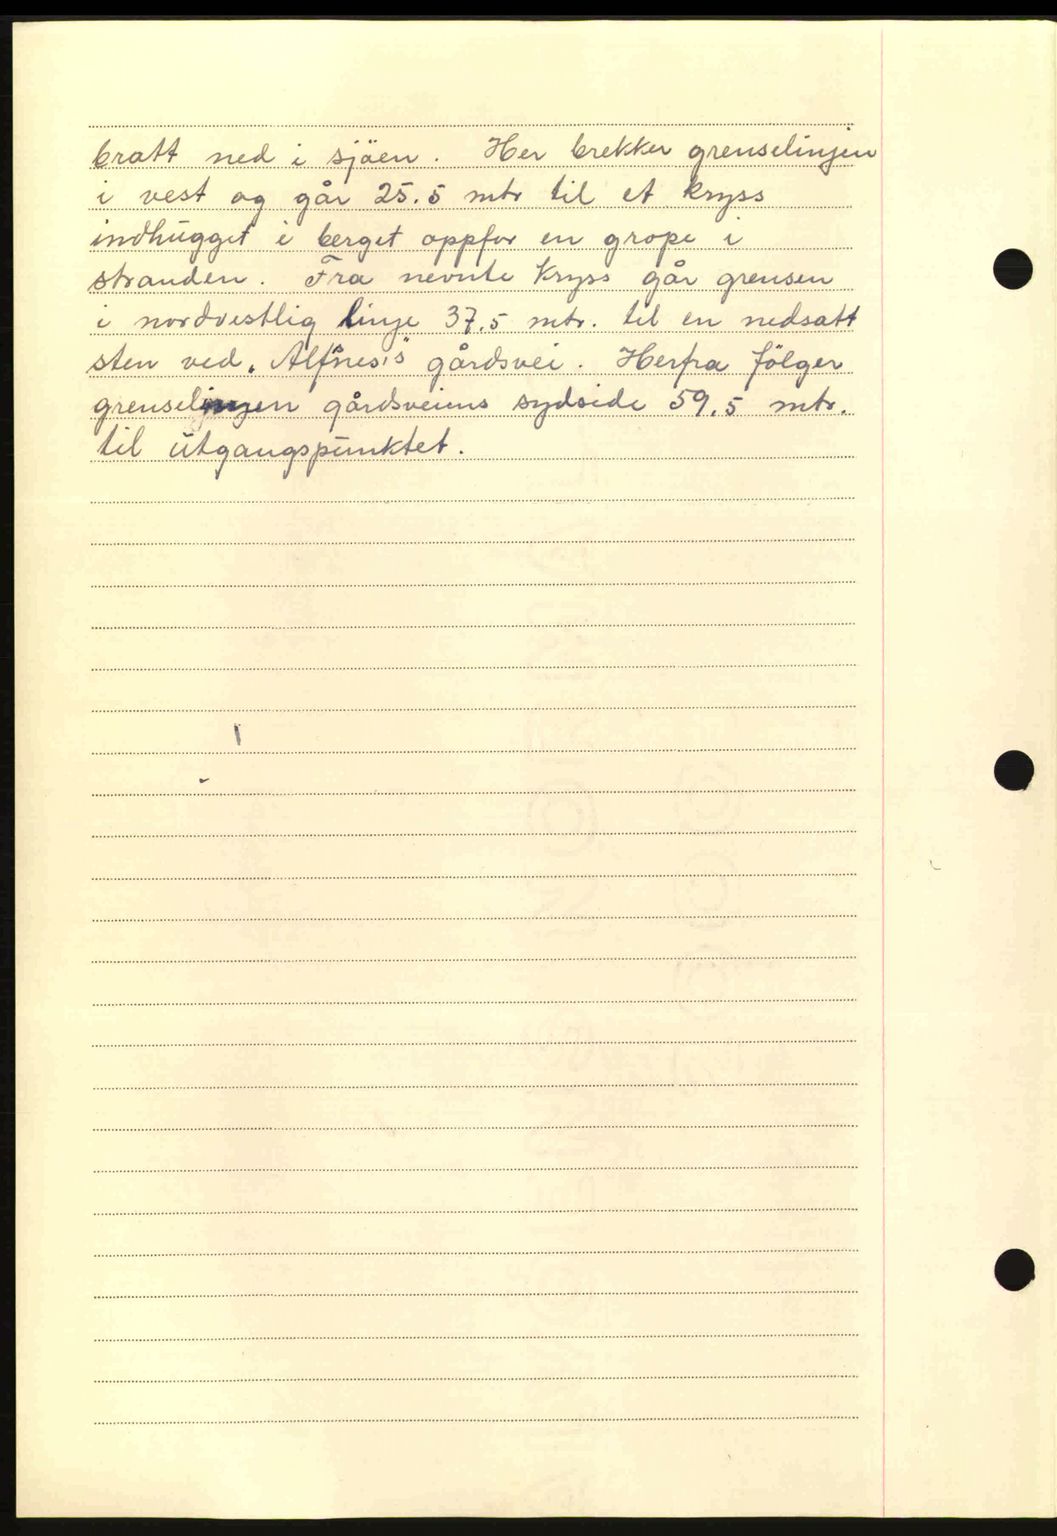 bratt ned i sjöen. Her brekker grenselinjen
i vest og går 25.5 mtr til et kryss
indhugget i berget oppfor en grope i
stranden. Fra nevnte kryss går grensen
i nordvestlig linje 37.5 mtr. til en nedsatt
sten ved „Alfnes's" gårdsvei. Herfra fölger
grenselinjen gårdsveiens sydside 59.5 mtr.
til utgangspunktet.